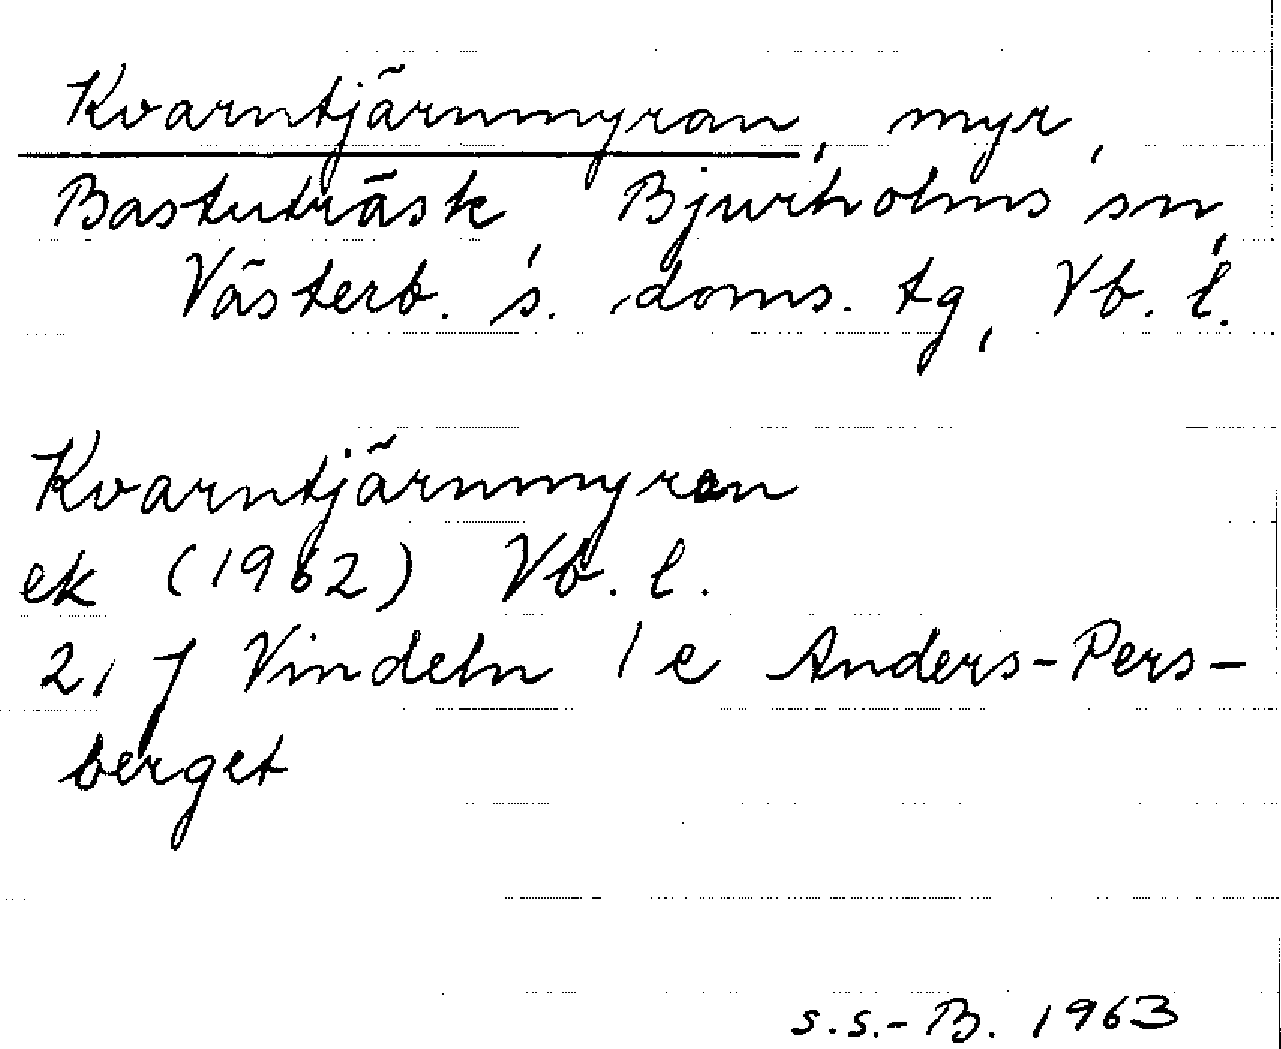 Kvarntjärnmyran, myr,
Bastuträsk, Bjurholms sn,
Västerb. s. doms. tg, Vb. l.
Kvarntjärnmyran
ek (1962) Vb. l.
21 J Vindeln 1 c Anders-Pers-
berget
s.s.-B. 1963